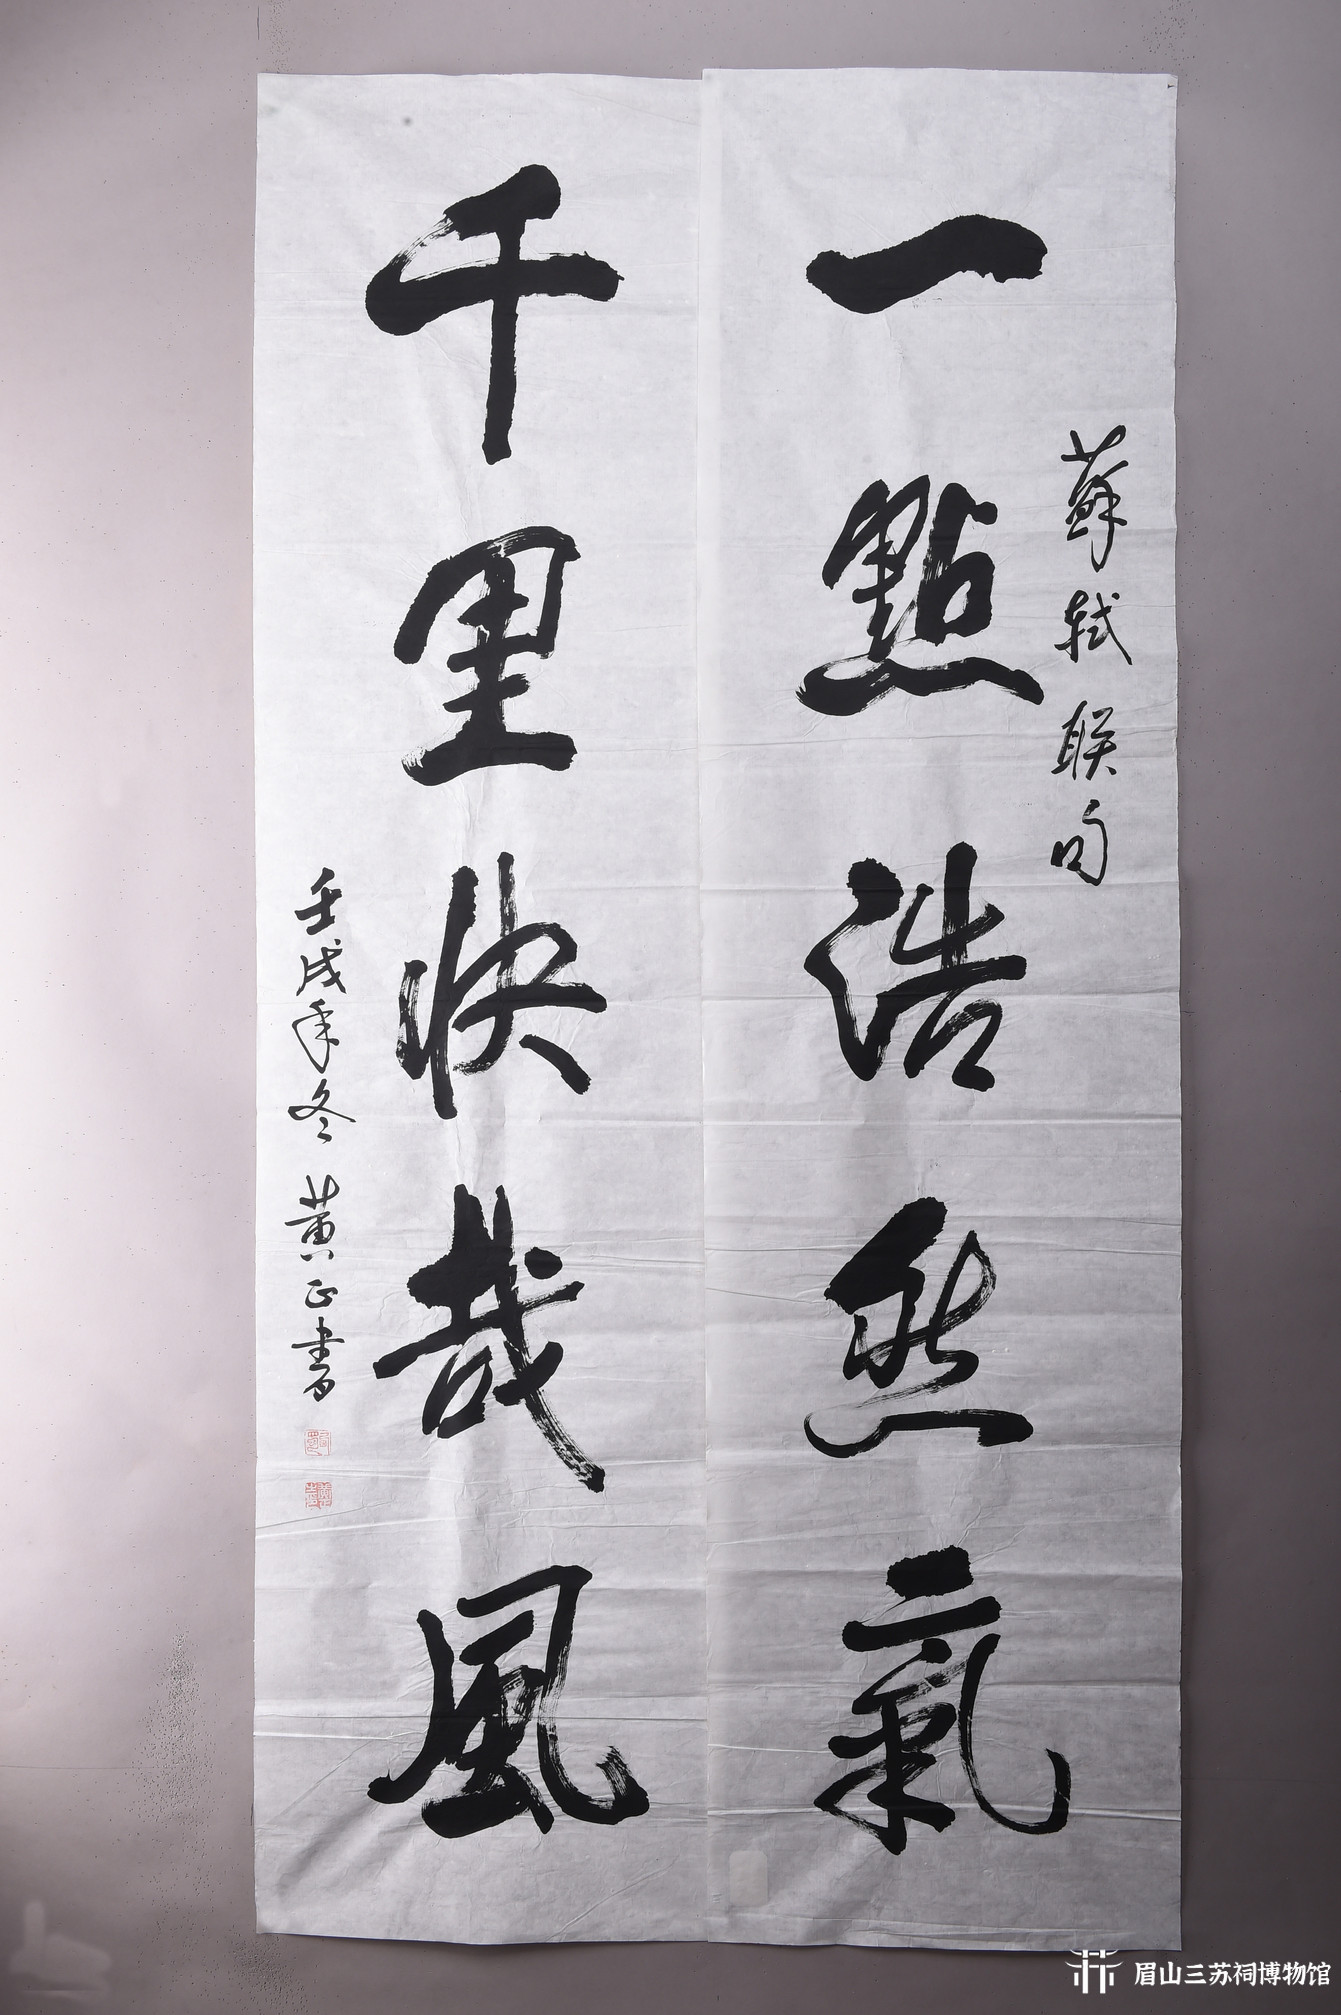 蘇軾联句
一點浩然氣
千里快哉風
壬戌年冬 黄正書
眉山三苏祠博物馆